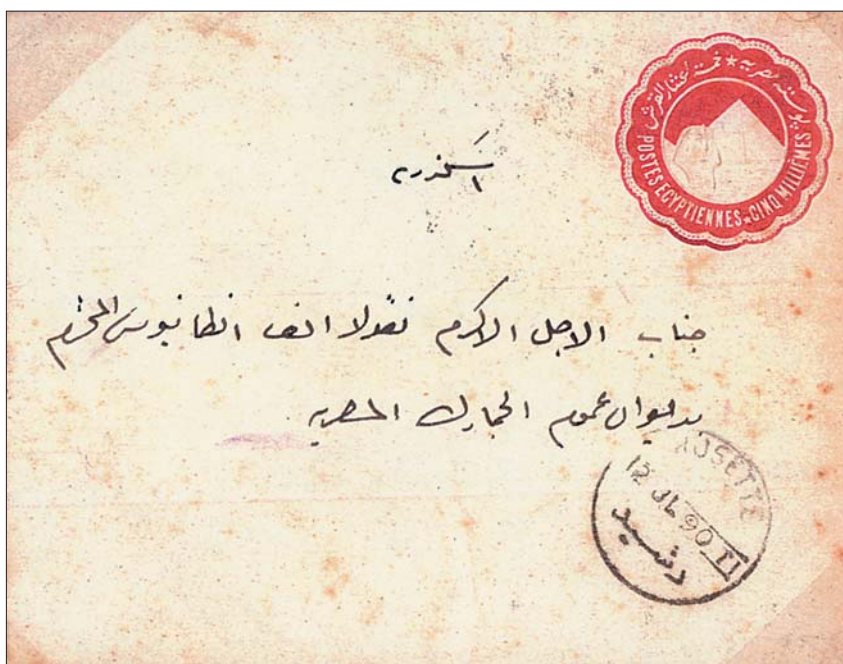 بوسته مصرية ★ خمسة اعشار القرش
POSTES EGYPTIENNES ★ CINQ MILLIÈMES
اسكندريه
جناب الاجل الاكرم نقولا افند انطانيوس المحترم
بديوان عموم الجمارك المصريه
ROSETTE
12 JL 90 II
رشيد